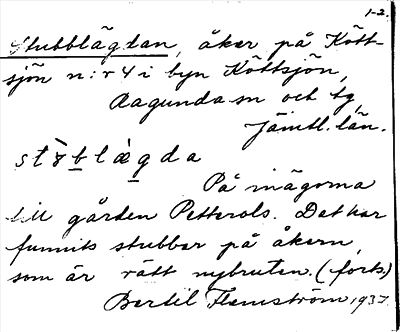 1-2.
Stubblägdan, åker på Kött-
sjön n:r 4 i byn Köttsjön,
Ragunda sn och tg,
Jämtl. län.
På inägorna
till gården Petterols. Det har
funnits stubbar på åkern,
som är rätt nybruten. (forts)
Bertil Flemström, 1937.